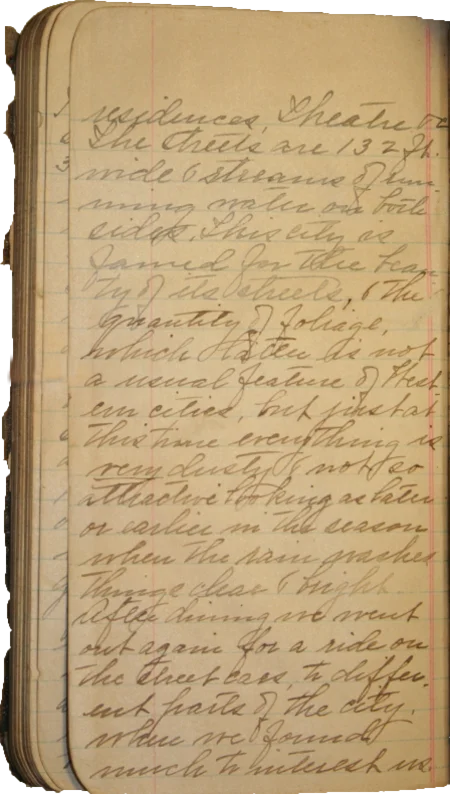 residences, Theatre &c
The streets are 132 ft.
wide & streams of run-
ning water on both
sides. This city is
famed for the beau-
ty of its streets, & the
quantity of foliage,
which latter is not
a usual feature of West
ern cities, but just at
this time everything is
very dusty & not so
attractive looking as later
or earlier in the season
when the rain washes
things clear & bright.
After dining we went
out again for a ride on
the street cars, to differ-
ent parts of the city,
where we found
much to interest us.